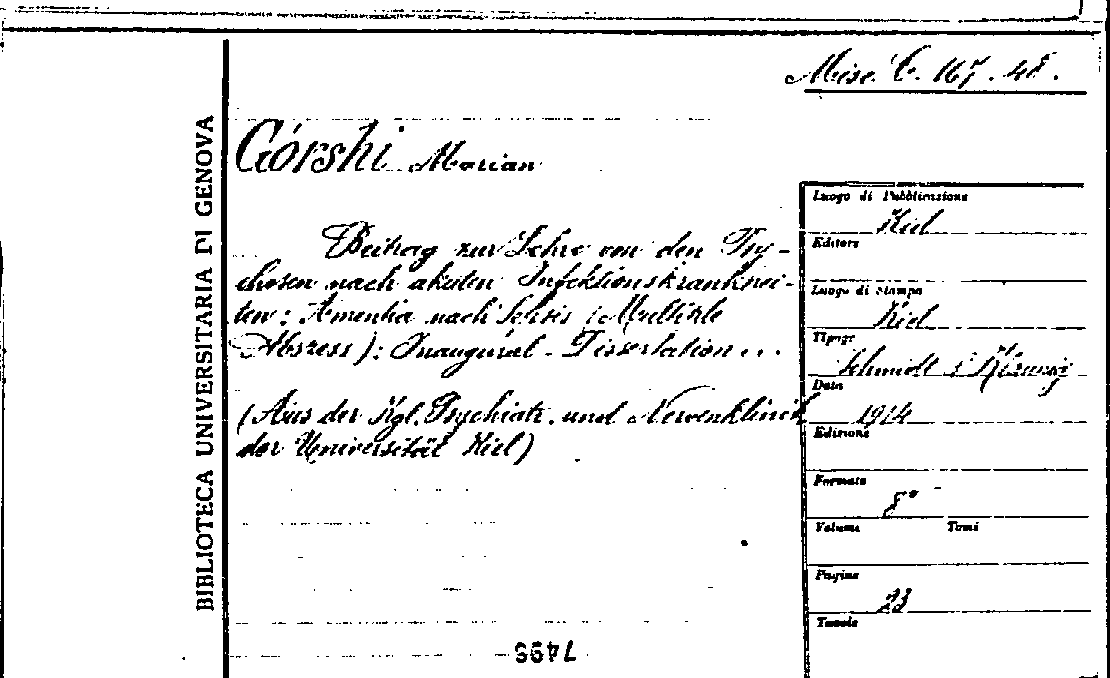 Misc. C. 167. 48.
BIBLIOTECA UNIVERSITARIA DI GENOVA
Górski Marian
Beitrag zur Lehre von den Psy-
chosen nach akuten Infektionskrankhei-
ten: Amentia nach Sepsis (Multiple
Abszess): Inaugural-Dissertation...
(Aus der Kgl. Psychiatr. und Nervenklinik
der Universität Kiel)
Luogo di Pubblicazione
Kiel
Editore
Luogo di Stampa
Kiel
Tipogr.
Schmidt &
Data
1914
Edizione
Formato
8°
Volume Tomi
Pagine
23
Tavole
7495